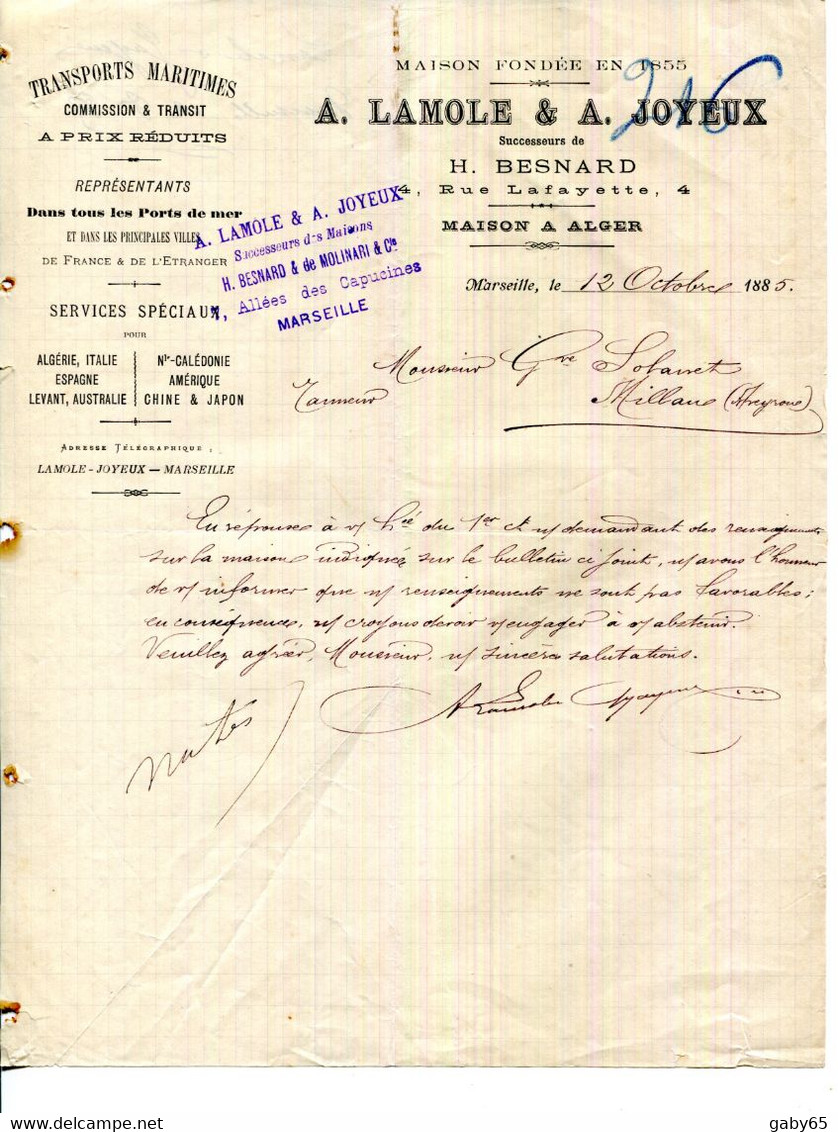 TRANSPORTS MARITIMES
COMMISSION & TRANSIT
A PRIX RÉDUITS
REPRÉSENTANTS
Dans tous les Ports de mer
ET DANS LES PRINCIPALES VILLES
DE FRANCE & DE L'ETRANGER
SERVICES SPÉCIAUX
POUR
ALGÉRIE, ITALIE
ESPAGNE
LEVANT, AUSTRALIE
Nlle-CALÉDONIE
AMÉRIQUE
CHINE & JAPON
ADRESSE TÉLÉGRAPHIQUE :
LAMOLE-JOYEUX — MARSEILLE
MAISON FONDÉE EN 1855
A. LAMOLE & A. JOYEUX
Successeurs de
H. BESNARD
4, Rue Lafayette, 4
MAISON A ALGER
A. LAMOLE & A. JOYEUX
Successeurs des Maisons
H. BESNARD & de MOLINARI & Cie
7, Allées des Capucines
MARSEILLE
Marseille, le 12 Octobre 1885.
Monsieur Gve
Tanneur Millau (Aveyron)
En réponse à v/ du 1er ct n/ demandant des renseignements
sur la maison indiquée sur le bulletin ci joint, n/ avons l'honneur
de v/ informer que n/ renseignements ne sont pas favorables;
en conséquence, n/ croyons devoir v/ engager à v/ abstenir.
Veuillez agréer, Monsieur, n/ sincères salutations.
A Lamole Joyeux
gaby65